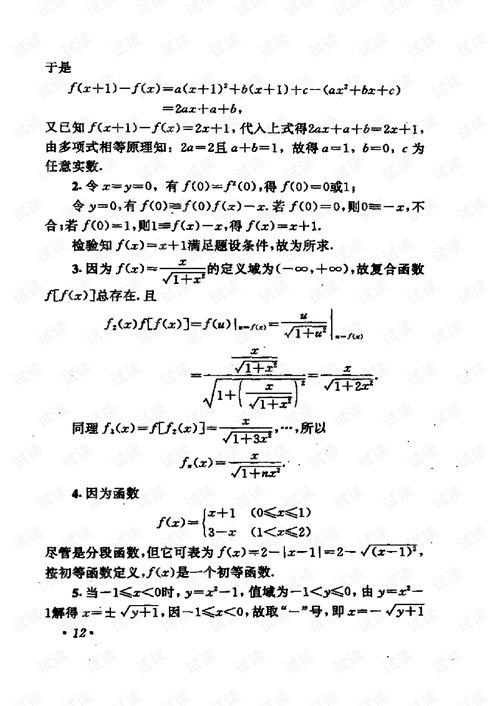 于是
f(x+1)-f(x)=a(x+1)²+b(x+1)+c-(ax²+bx+c)
=2ax+a+b,
又已知f(x+1)-f(x)=2x+1,代入上式得2ax+a+b=2x+1,
由多项式相等原理知:2a=2且a+b=1,故得a=1,b=0,c为
任意实数.
2.令x=y=0,有f(0)=f²(0),得f(0)=0或1;
令y=0,有f(0)≡f(0)f(x)-x.若f(0)=0,则0≡-x,不
合;若f(0)=1,则1≡f(x)-x,得f(x)=x+1.
检验知f(x)=x+1满足题设条件,故为所求.
3.因为f(x)=x/√(1+x²)的定义域为(-∞,+∞),故复合函数
f[f(x)]总存在.且
f₂(x)f[f(x)]=f(u)|u=f(x)=u/√(1+u²)|u=f(x)
=(x/√(1+x²))/√(1+(x/√(1+x²))²)=x/√(1+2x²).
同理f₃(x)=f[f₂(x)]=x/√(1+3x²),…,所以
fₙ(x)=x/√(1+nx²).
4.因为函数
f(x)={x+1 (0≤x≤1)
3-x (1<x≤2)
尽管是分段函数,但它可表为f(x)=2-|x-1|=2-√(x-1)²,
按初等函数定义,f(x)是一个初等函数.
5.当-1≤x<0时,y=x²-1,值域为-1<y≤0,由y=x²-
1解得x=±√y+1,因-1≤x<0,故取“-”号,即x=-√y+1
·12·